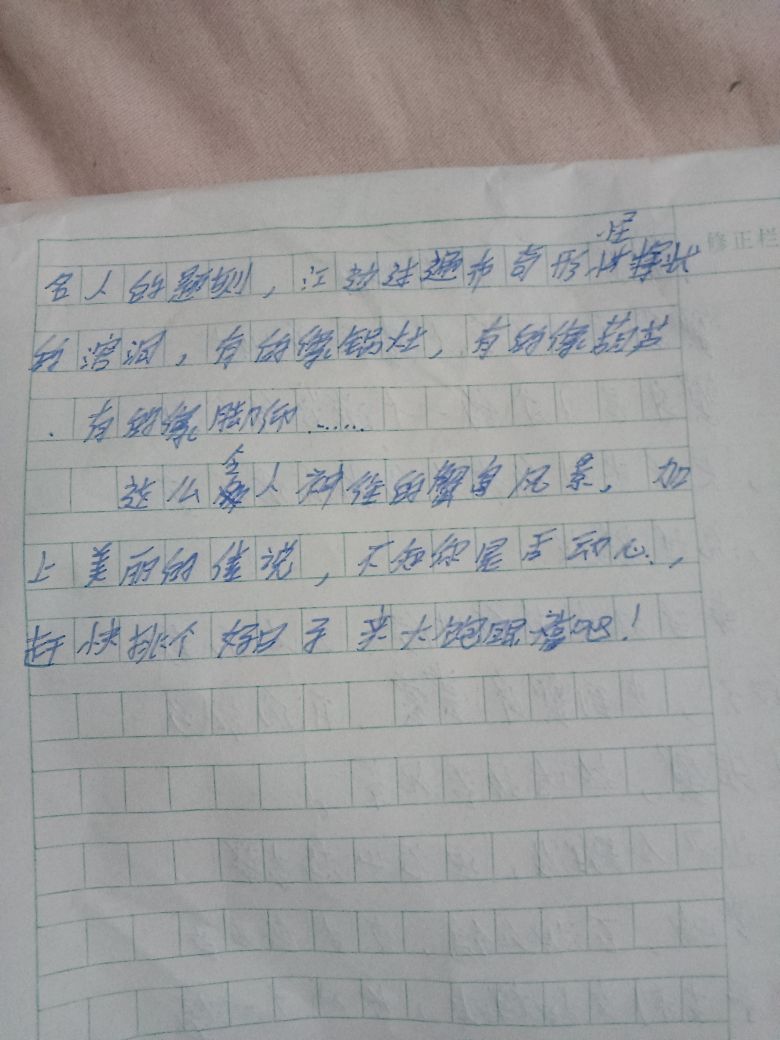 修正栏
名人的题刻，江边还遍布奇形
的溶洞，有的像锅灶，有的像葫芦
．有的像脚印……
这么令人神往的蟹身风景，加
上美丽的传说，不知你是否动心，
赶快挑个好日子来大饱眼福吧！